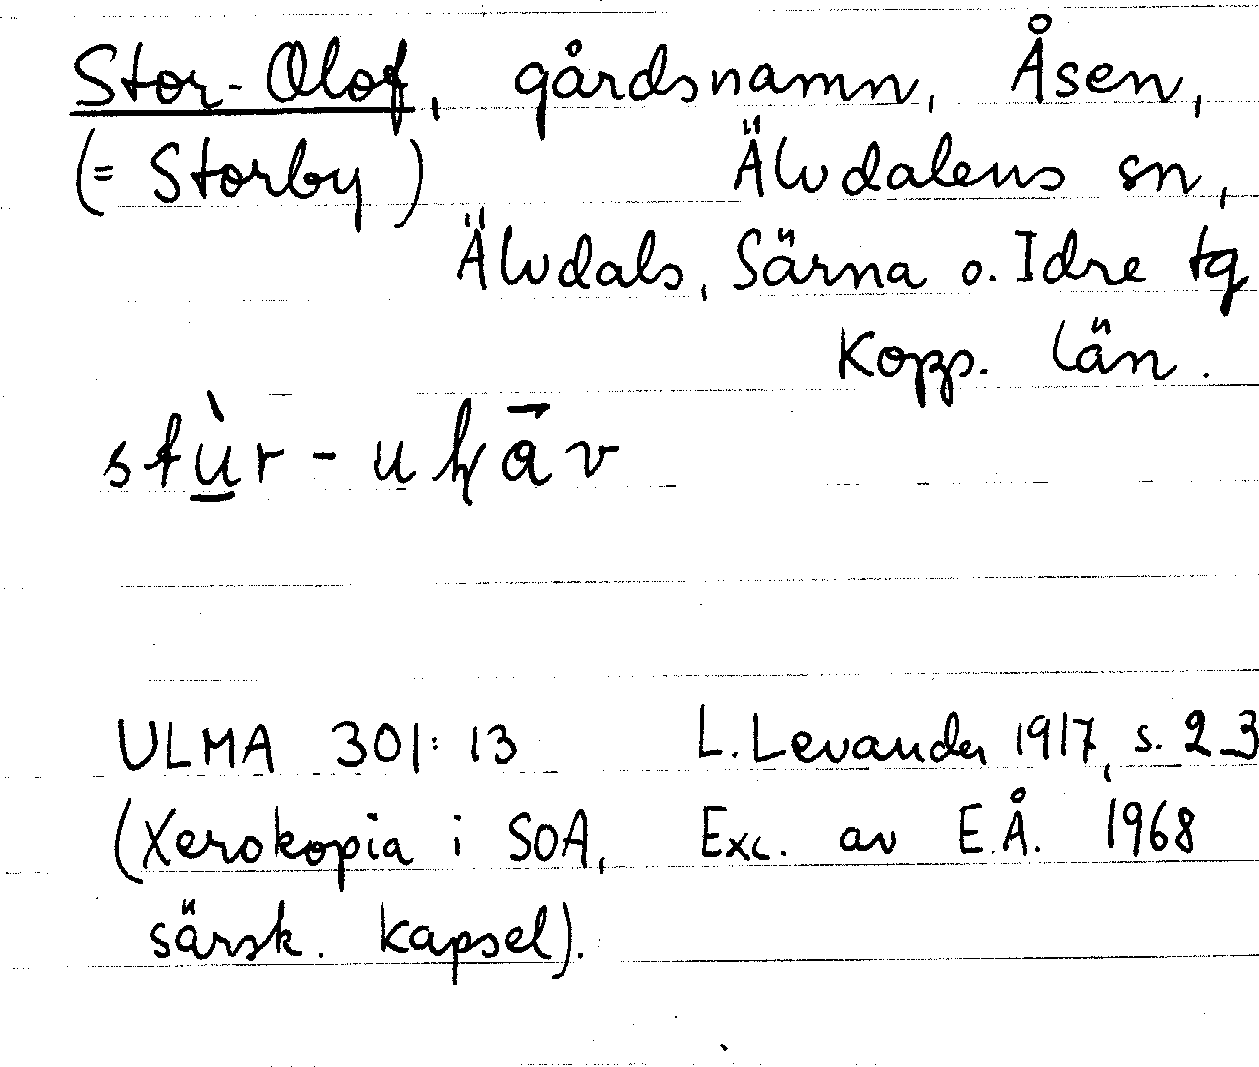 Stor-Olof, gårdsnamn, Åsen,
(= Storby) Älvdalens sn,
Älvdals, Särna o. Idre tg
Kopp. län.
ULMA 301:13 L. Levander 1917, s. 23
(Xerokopia i SOA, Exc. av E.Å. 1968
särsk. kapsel).